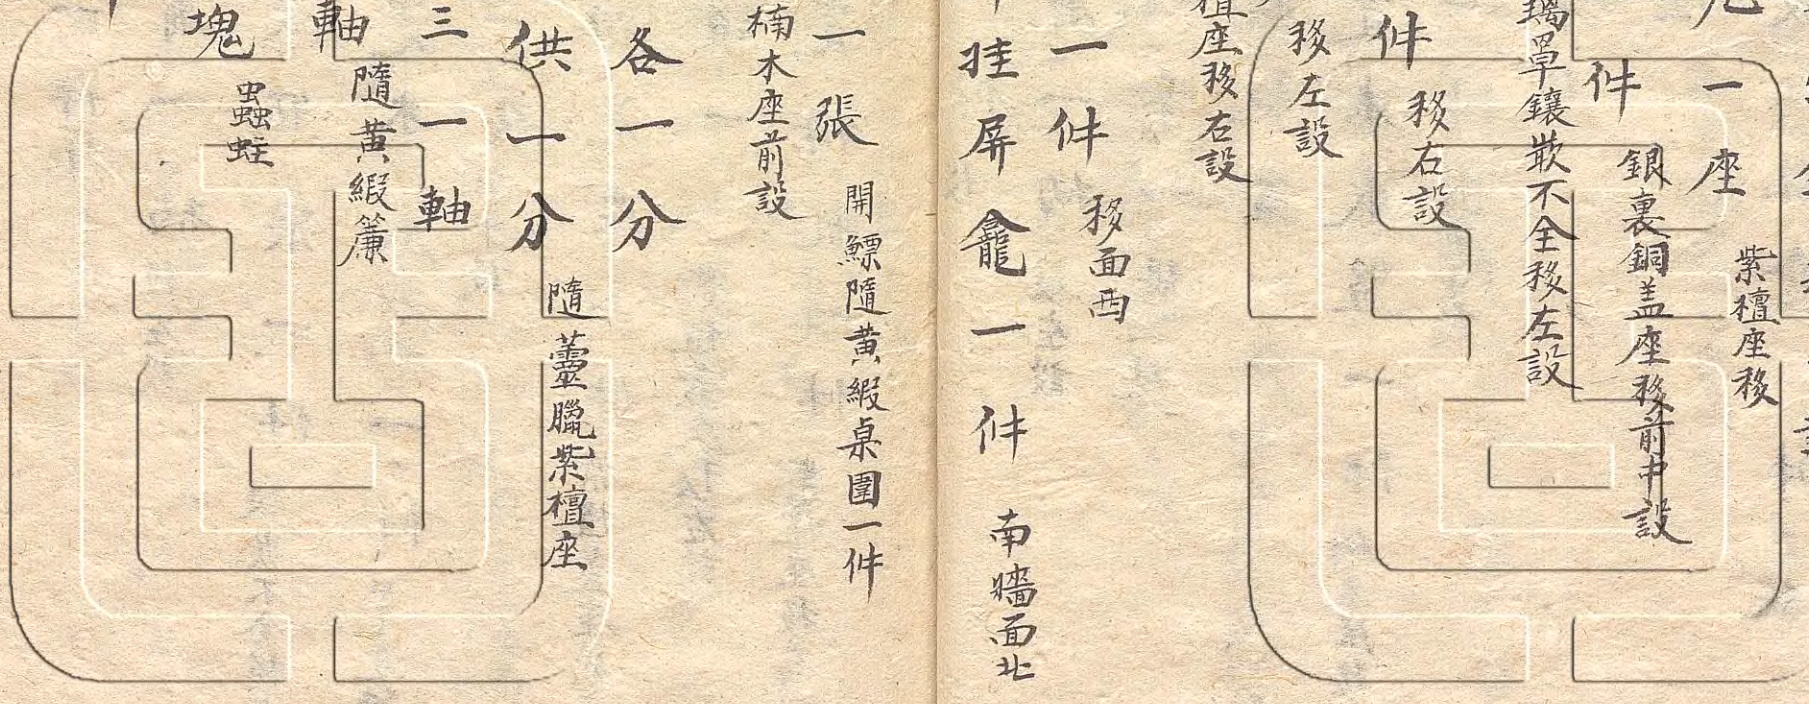 一座
紫檀座移
件
銀裏銅盖座移前中設
罩鑲歉不全移左設
件
移右設
移左設
座移右設
一件
移面西
挂屏龕一件
南牆面北
一張
開鰾隨黃緞桌圍一件
楠木座前設
各一分
供一分
隨薹臘紫檀座
三一軸
軸
隨黃緞簾
塊
蟲蛀